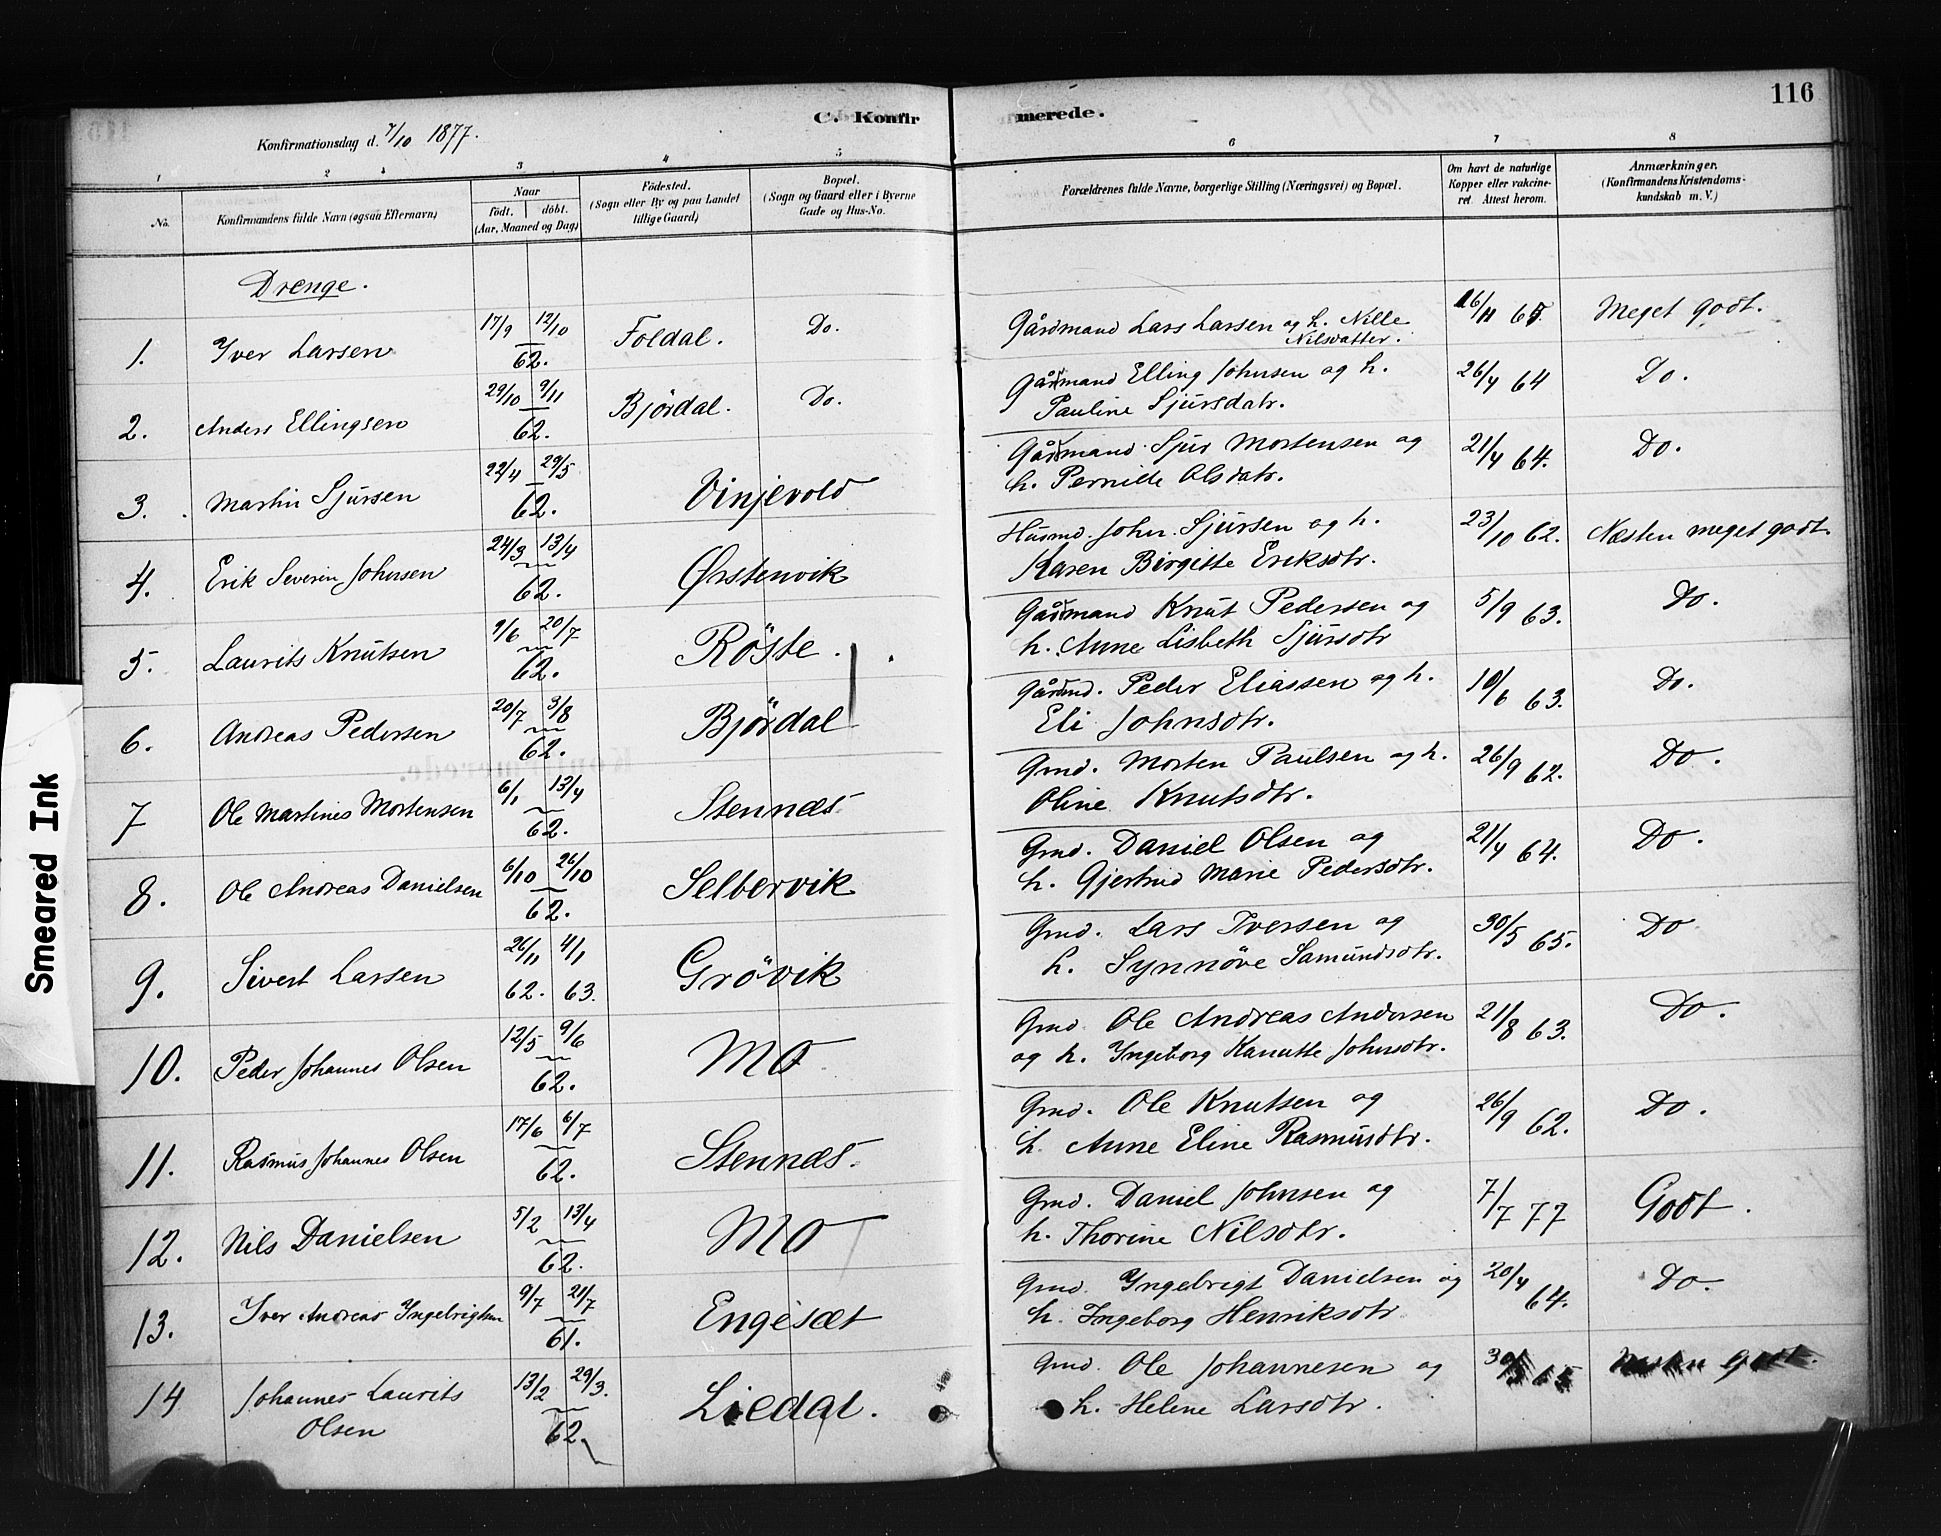 116
C. Konfirmerede.
Konfirmationsdag d. 7/10 1877.
1 2 3 4 5 6 7 8
No.
Konfirmandens fulde Navn (ogsaa Efternavn)
Naar
født. døbt.
(Aar, Maaned og Dag)
Fødested.
(Sogn eller By og paa Landet
tillige Gaard)
Bopæl.
(Sogn og Gaard eller i Byerne
Gade og Hus-No.
Forældrenes fulde Navne, borgerlige Stilling (Næringsvei) og Bopæl.
Om havt de naturlige
Kopper eller vakcine-
ret. Attest herom.
Anmærkninger,
(Konfirmandens Kristendoms-
kundskab m. V.)
Drenge.
1. Yver Larsen 17/9 12/10 62. Foldal. Do. Gårdmand Lars Larsen og h. Nille
Nilsdatter. 16/11 65. Meget godt.
2. Anders Ellingsen 29/10 9/11 62. Björdal. Do. Gårdmand Elling Johnsen og h.
Pauline Sjursdatr. 26/4 64 Do.
3. Martin Sjursen 22/4 29/5 62. Vinjevold Gårdmand Sjur Mortensen og
h. Pernille Olsdatr. 21/4 64. Do.
4. Erik Severin Johnsen 24/3 13/4 62. Ørstenvik Husmd. John Sjursen og h.
Karen Birgitte Eriksdtr. 23/10 62. Næsten meget godt.
5. Laurits Knutsen 9/6 20/7 62. Röste. Gårdmand Knut Pedersen og
h. Anne Lisbeth Sjursdtr 5/9 63. Do.
6. Andreas Pedersen 20/7 3/8 62. Björdal Gårdmd. Peder Eliassen og h.
Eli Johnsdtr. 10/6 63. Do.
7 Ole Martines Mortensen 6/1 13/4 62. Stennæs Gmd. Morten Paulsen og h.
Oline Knutsdtr. 26/9 62. Do.
8. Ole Andreas Danielsen 6/10 26/10 62. Selbervik Gmd. Daniel Olsen og
h. Gjertrud Marie Pedersdtr. 21/4 64. Do.
9. Sivert Larsen 26/11 62. 4/1 63. Grövik Gmd. Lars Iversen og
h. Synnöve Samundsdtr. 30/5 65. Do
10. Peder Johannes Olsen 12/5 9/6 62. Mo Gmd. Ole Andreas Andersen
og h. Yngeborg Kanutte Johnsdtr. 21/8 63. Do.
11. Rasmus Johannes Olsen 17/6 6/7 62. Stennæs. Gmd. Ole Knutsen og
h. Anne Eline Rasmusdtr. 26/9 62. Do.
12. Nils Danielsen 5/2 13/4 62. Mo Gmd. Daniel Johnsen og
h. Thorine Nilsdtr. 7/7 77 Godt.
13. Yver Andreas Yngebrigtsen 9/7 21/7 61. Engesæt Gmd. Yngebrigt Danielsen og
h. Ingeborg Henriksdtr 20/4 64. Do.
14 Johannes Laurits
Olsen 13/2 29/3. 62. Liedal. Gmd. Ole Johannesen og
h. Helene Larsdtr. 30/5 65 Næsten Godt.
Smeared Ink